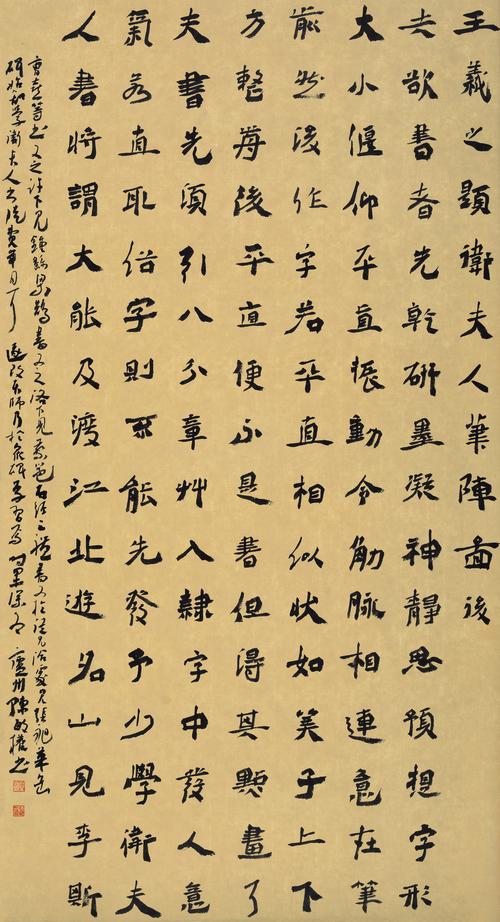 王羲之題衛夫人筆陣圖後
夫欲書者先乾研墨凝神靜思預想字形
大小偃仰平直振動令筋脈相連意在筆
前然後作字若平直相似狀如筭子上下
方整前後平直便不是書但得其點畫了
夫書先須引八分章艸入隸字中發人意
氣若直取俗字則不能先發予少學衛夫
人書將謂大能及渡江北遊名山見李斯
曹喜等書又之許下見鍾繇梁鵠書又之洛下見蔡邕石經三體書又於從兄洽處見張昶華岳
碑始知學衛夫人書徒費年月耳遂改本師乃於众碑學習焉廬州陳書